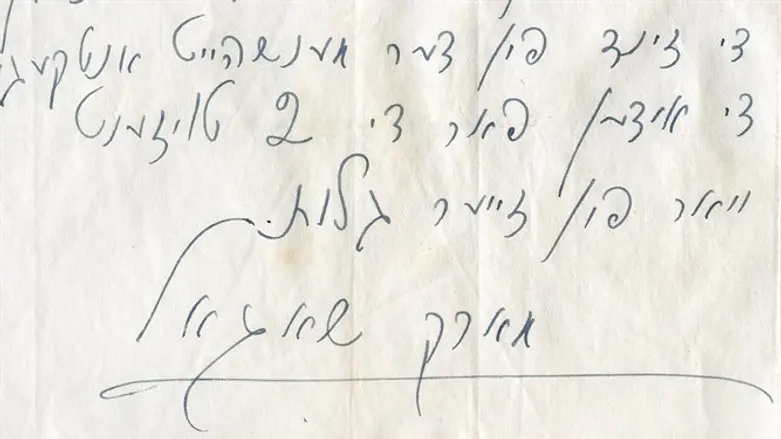 די זינד פון דער מענשהייט אנטקעג
די אידען פאר די 2 טויזענט
יאר פון זייער גלות.
מארק שאגאל